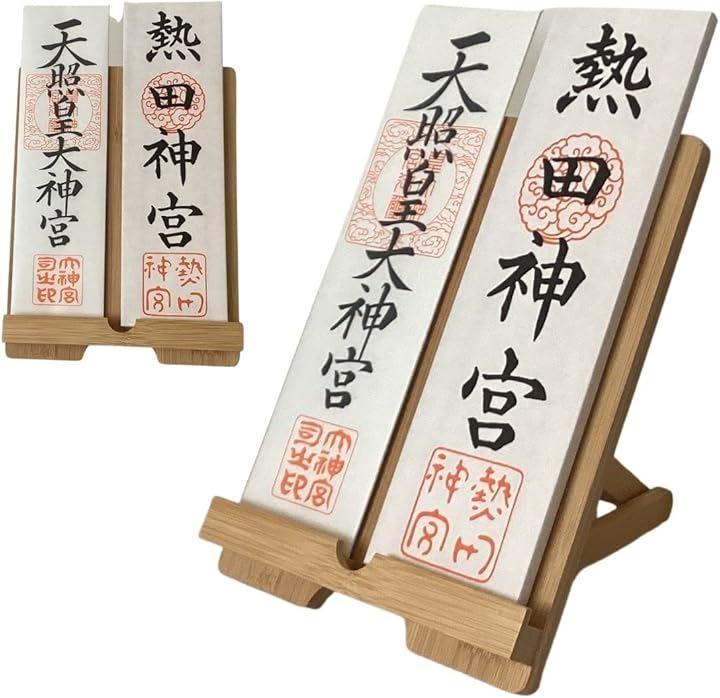 天照皇大神宮
大神宮
司之印
熱田神宮
熱田
神宮
天照皇大神宮
大神宮
司之印
熱田神宮
熱田
神宮